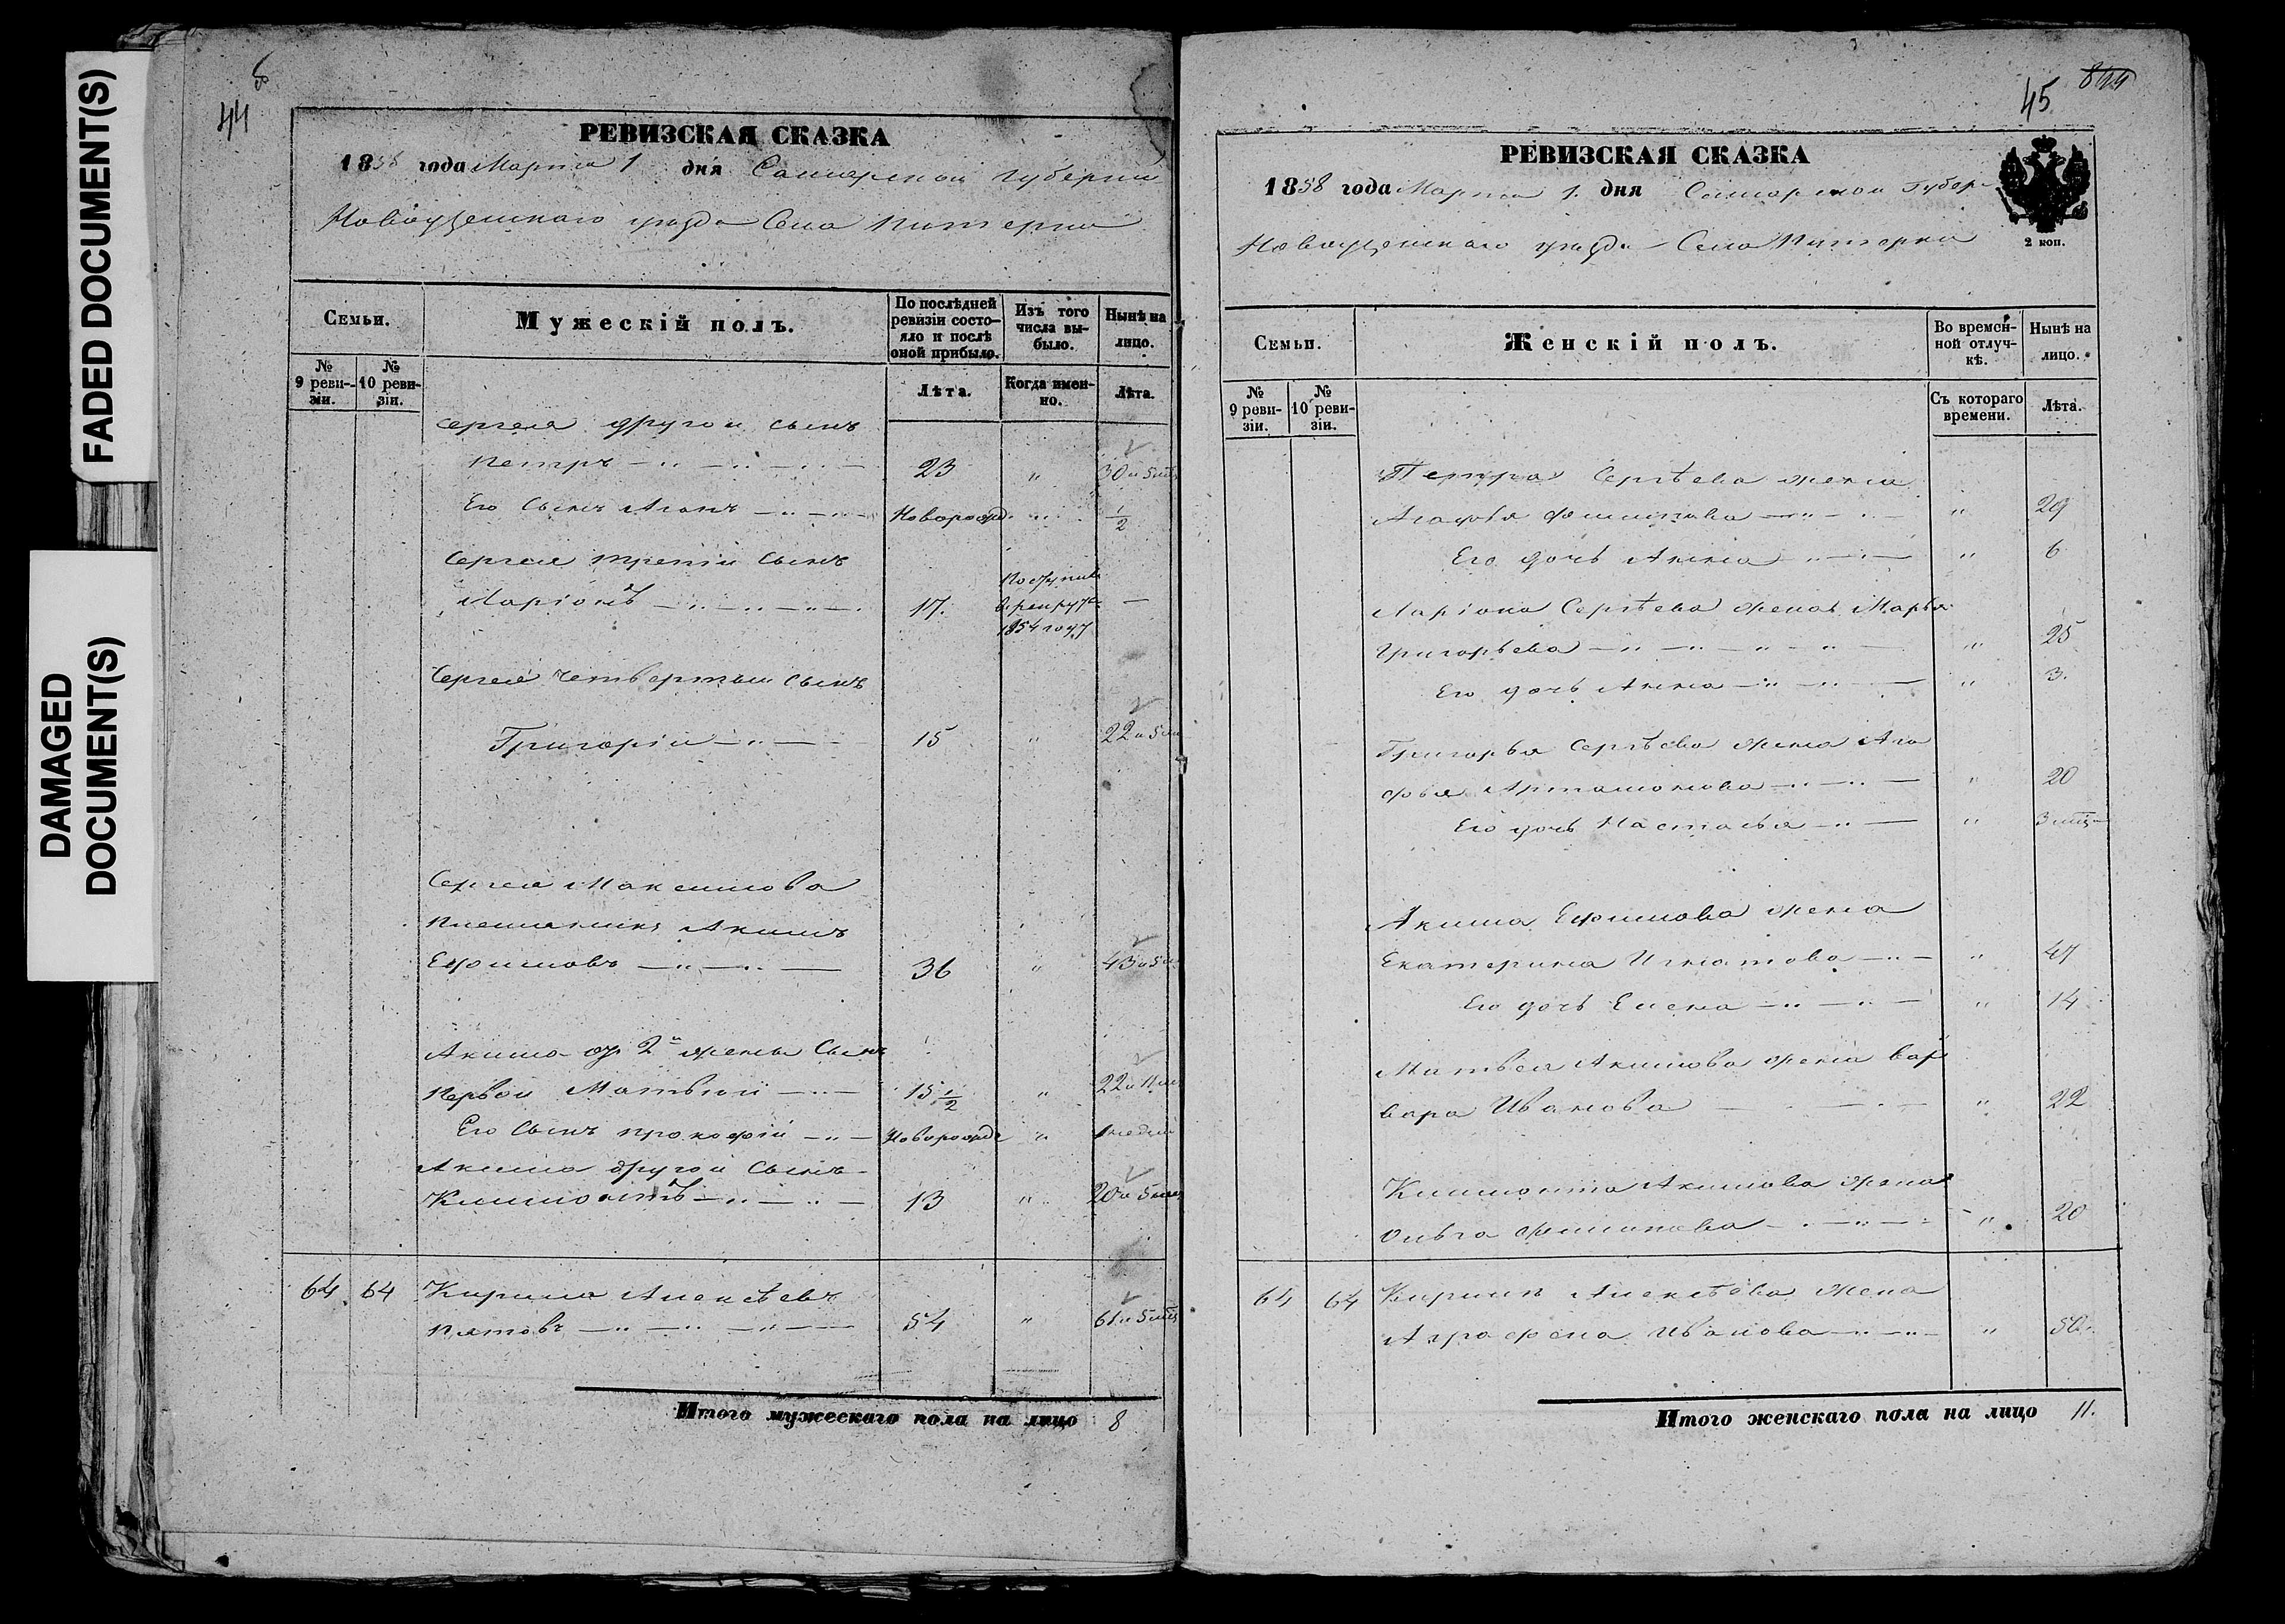 FADED DOCUMENT(S)
DAMAGED
DOCUMENT(S)
44
РЕВИЗСКАЯ СКАЗКА
1858 года Марта 1 дня Самарской губерніи
Новоузенскаго уезда Села Питерки
Семьи.
Мужескій полъ.
По послѣдней ревизіи состо-
яло и послѣ
оной прибыло.
Изъ того
числа вы-
было.
Нынѣ на
лицо.
№
9 реви-
зіи.
№
10 реви-
зіи.
Лѣта.
Когда имен-
но.
Лѣта.
Сергея другой сынъ
Петръ — 23 " 30 и 5 мц
Его Сынъ Новорожд. " 1/2
Сергея третій Сынъ
Ларіонъ — 17. Поступил в рекруты 1854 году —
Сергея четвертый сынъ
Григорій — 15 " 22 и 5 м
Сергея Максимова
племянникъ Акимъ
Ефимовъ — 36 " 43 и 5 м
Акима от 2й жены Сынъ
первой Матвѣй — 15 1/2 " 22 и 11 м
Его Сынъ прокофій — Новорожде " 1 недели
Акима другой Сынъ
Климонтъ — 13 " 20 и 5 мес
64 64 Кирила Алексѣевъ
Пятовъ — 54 " 61 и 5 мц
Итого мужескаго пола на лицо 8
45 844
РЕВИЗСКАЯ СКАЗКА
1858 года Марта 1. дня Самарской Губер-
Новоузенскаго уезда Села Питерки
2 коп.
Семьи.
Женскій полъ.
Во времен-
ной отлуч-
кѣ.
Нынѣ на
лицо.
№
9 реви-
зіи.
№
10 реви-
зіи.
Съ котораго
времени.
Лѣта.
Петра Сергѣева жена
Агафья Филипова — " 29
Его дочь Анна — " 6
Ларіона Сергѣева жена Марья
Григорьева — " 25
Его дочь Анна — " 3.
Григорья Сергѣева жена Ага
фья Артамонова — " 20
Его дочь Настасья — " 3 мц
Акима Ефимова жена
Екатерина Игнатова — " 47
Его дочь Елена — " 14
Матвея Акимова жена Вар
вара Иванова — " 22
Климонта Акимова жена
Ольга Филипова — " 20
64 64 Кирила Алексѣева Жена
Аграфена Иванова — " 50.
Итого женскаго пола на лицо 11.